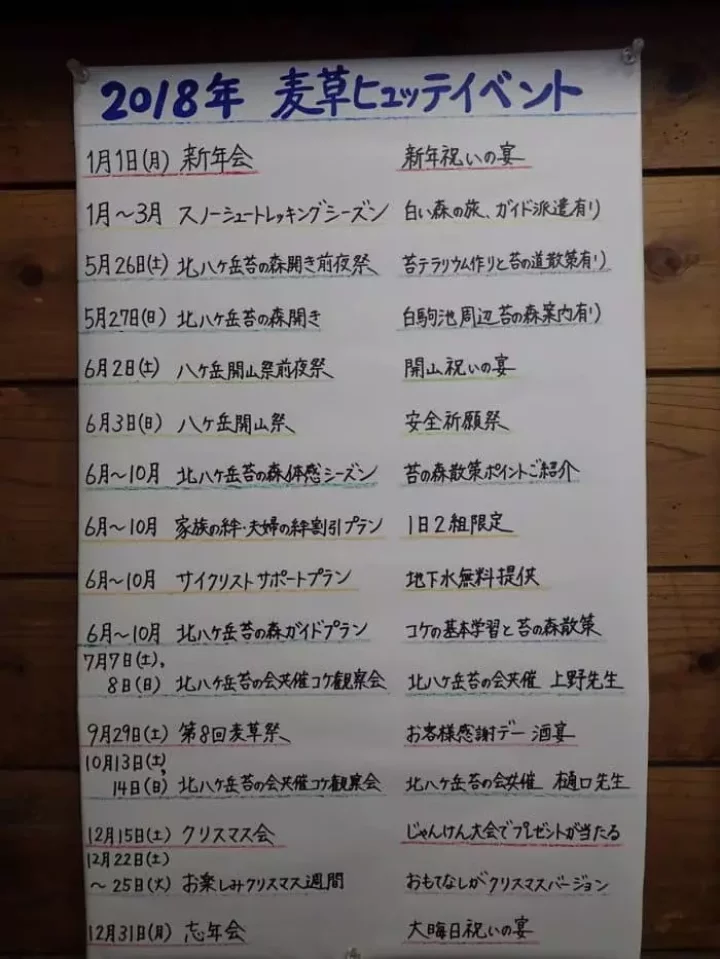 2018年 麦草ヒュッテイベント
1月1日(月) 新年会 新年祝いの宴
1月～3月 スノーシュートレッキングシーズン 白い森の旅、ガイド派遣有り
5月26日(土) 北八ヶ岳苔の森開き前夜祭 苔テラリウム作りと苔の道散策有り
5月27日(日) 北八ヶ岳苔の森開き 白駒池周辺苔の森案内有り
6月2日(土) 八ヶ岳開山祭前夜祭 開山祝いの宴
6月3日(日) 八ヶ岳開山祭 安全祈願祭
6月～10月 北八ヶ岳苔の森体感シーズン 苔の森散策ポイントご紹介
6月～10月 家族の絆・夫婦の絆割引プラン 1日2組限定
6月～10月 サイクリストサポートプラン 地下水無料提供
6月～10月 北八ヶ岳苔の森ガイドプラン コケの基本学習と苔の森散策
7月7日(土),
8日(日) 北八ヶ岳苔の会共催コケ観察会 北八ヶ岳苔の会共催 上野先生
9月29日(土) 第8回麦草祭 お客様感謝デー 酒宴
10月13日(土),
14日(日) 北八ヶ岳苔の会共催コケ観察会 北八ヶ岳苔の会共催 樋口先生
12月15日(土) クリスマス会 じゃんけん大会でプレゼントが当たる
12月22日(土)
～25日(火) お楽しみクリスマス週間 おもてなしがクリスマスバージョン
12月31日(月) 忘年会 大晦日祝いの宴